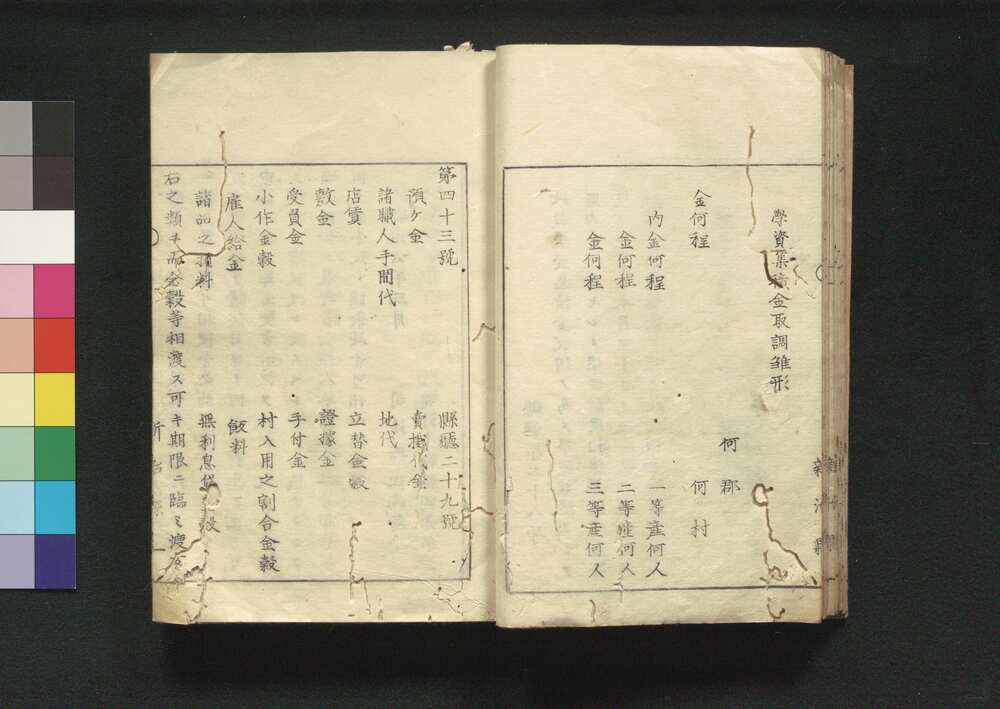 學資集積金取調雛形
何郡
金何程 何村
內金何程 一等産何人
金何程 二等産何人
金何程 三等産何人
第四十三號 縣廳二十九號
預ケ金 賣掛代金
諸職人手間代 地代
店賃 立替金穀
敷金 證據金
受負金 手付金
小作金穀 村入用之割合金穀
雇人給金 飯料
諸品之損料 無利息貸金穀
右之類ヲ而金穀等相渡ス可キ期限ニ臨ミ渡